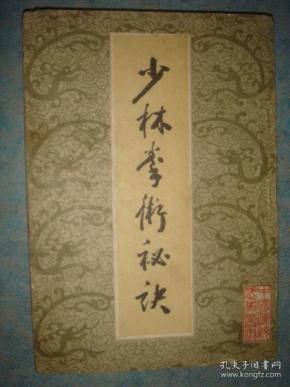 少林拳術秘訣
孔夫子旧书网
www.kongfz.com